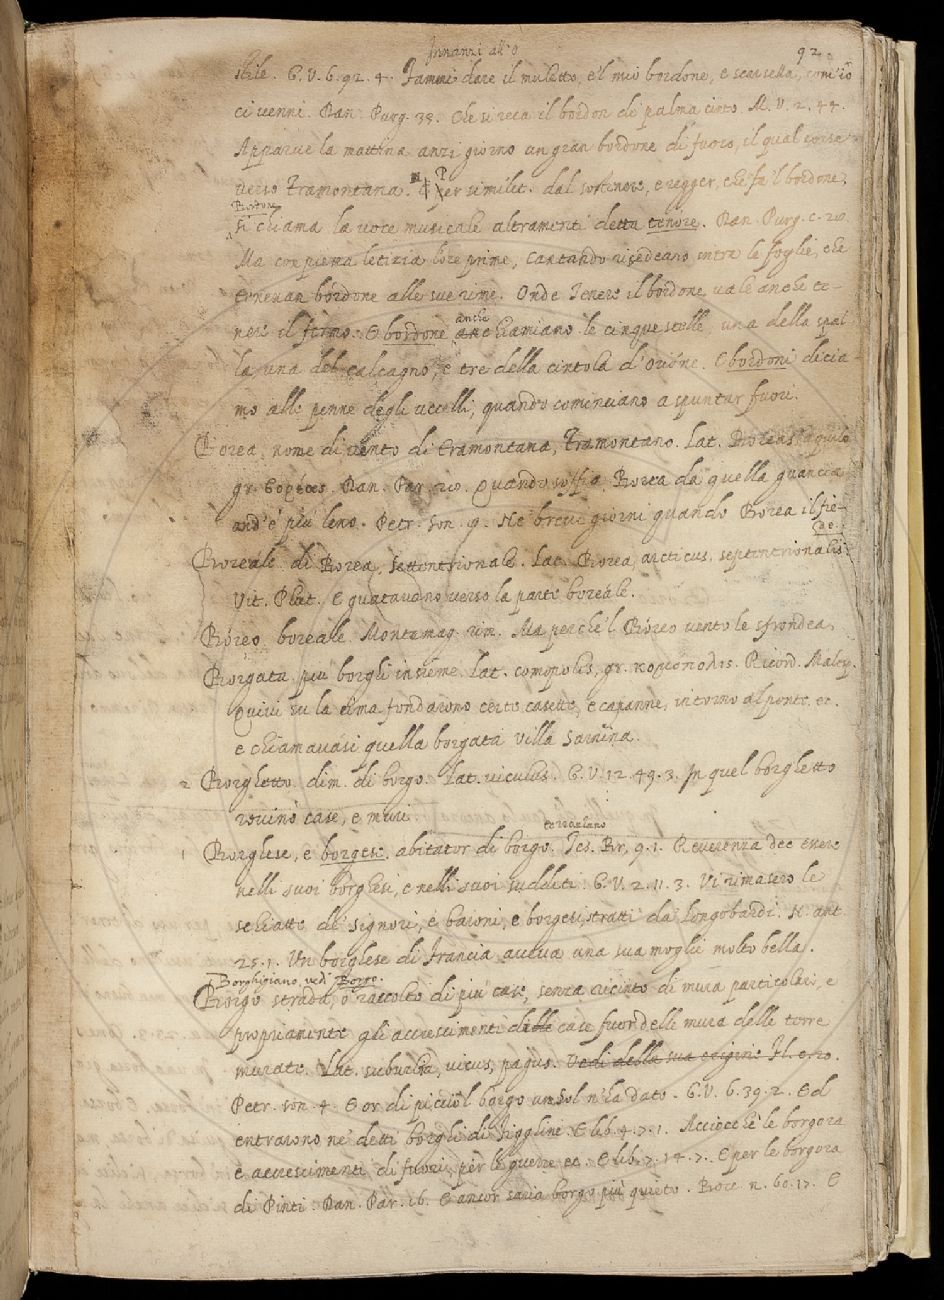 Innanzi al O
92
stile. G.V. 6. 92. 4. Fammi dare il muletto, e'l mio bordone, e scarsella, com'io
ci venni. Dan. Purg. 33. Che si reca il bordon di palma cinto. M.V. 2. 44.
Apparve la mattina anzi giorno un gran bordone di fuoco, il qual corse
verso Tramontana. Per similit. dal sostenere, e regger, che fa 'l bordone,
Bordone
si chiama la voce musicale altramenti detta tenore. Dan. Purg. c. 28.
Ma con piena letizia l'ore prime, Cantando riscedeano intra le foglie, che
tenevan bordone alle sue rime. Onde Tenere il bordone, vale anche te-
anche
nere il fermo. E bordone chiamiano le cinque stelle, una della spal-
la, una del calcagno, e tre della cintola d'Orione. E bordoni dicia-
mo alle penne degli uccelli, quando cominciano a spuntar fuori.
Borea, nome di vento di tramontana, Tramontano. Lat. Boreas, aquilo
gr. βορέας. Dan. Par. 28. Quando soffia Borea da quella guancia
ond'è più leno. Petr. son. 9. Né brevi giorni quando Borea il fie-
de.
Boreale. di Borea, settentrionale. Lat. Borea, arcticus, septentrionalis
Vit. Plut. E guatavano verso la parte boreale.
Bóreo, boreale. Montemag. rim. Ma perchè 'l Bóreo vento le sfronde a,
Borgata. più borghi insieme. Lat. comopolis, gr. κομόπολις. Ricord. Malesp.
Quivi su la cima fondarono certe casette, e capanne, intorno al ponte. ec.
e chiamavasi quella borgata villa
2 Borghetto. dim. di borgo. Lat. viculus. G.V. 12. 49. 3. In quel borghetto
rovinò case, e muri.
terrazzano
1 Borghese, e borgese. abitator di borgo. Tes. Br. 9. 1. Reverenza dee essere
nelli suoi borghesi, e nelli suoi sudditi. G.V. 2. 11. 3. Vi rimasero le
schiatte de' signori, e baroni, e borgesi, stratti da Longobardi. N. ant.
25. 1. Un borghese di Francia aveva una sua moglie molto bella.
Borghigiano, vedi Borgo.
Borgo strada, o raccolto di più case, senza recinto di mura particolari, e
propriamente gli accrescimenti delle case fuor delle mura delle terre
murate. Lat. suburbia, vicus, pagus. Vedi della sua origine
Petr. son. 4. E or di picciol borgo un Sol n'ha dato. G.V. 6. 39. 2. Ed
entrarono ne' detti borghi di Fegghine. E lib. 4. 7. 1. Acciocchè le borgora
e accrescimenti di fuori, per le guerre ec. E lib. 7. 14. 7. E per le borgora
di Pinti. Dan. Par. 16. E ancor saria borgo più quieto. Bocc. n. 60. 17. E